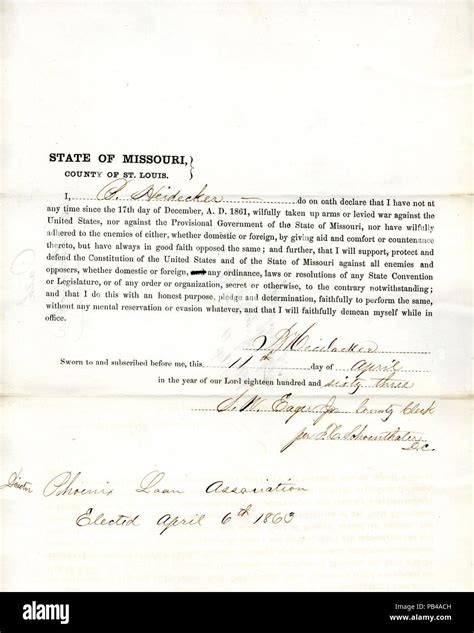 STATE OF MISSOURI,}
COUNTY OF ST. LOUIS.
I, P. Heidacker do on oath declare that I have not at
any time since the 17th day of December, A. D. 1861, wilfully taken up arms or levied war against the
United States, nor against the Provisional Government of the State of Missouri, nor have wilfully
adhered to the enemies of either, whether domestic or foreign, by giving aid and comfort or countenance
thereto, but have always in good faith opposed the same; and further, that I will support, protect and
defend the Constitution of the United States and of the State of Missouri against all enemies and
opposers, whether domestic or foreign, any ordinance, laws or resolutions of any State Convention
or Legislature, or of any order or organization, secret or otherwise, to the contrary notwithstanding;
and that I do this with an honest purpose, pledge and determination, faithfully to perform the same,
without any mental reservation or evasion whatever, and that I will faithfully demean myself while in
office.
P Heidacker
Sworn to and subscribed before me, this 11th day of April
in the year of our Lord eighteen hundred and sixty three
S. W. Eager Jr. County Clerk
per F. C. Schoenthaler
D.C.
Director Phoenix Loan Association
Elected April 6th 1863
alamy
Image ID: PB4ACH
www.alamy.com